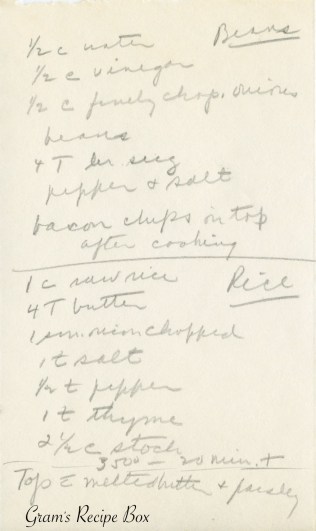 Beans
1/2 c water
1/2 c vinegar
1/2 c finely chop. onions
beans
4 T br. sug
pepper + salt
bacon chips on top
after cooking
Rice
1 c raw rice
4 T butter
1 sm. onion chopped
1 t salt
1/2 t pepper
1 t thyme
2 1/2 c stock
350° - 20 min. +
Top c̄ melted butter + parsley
Gram's Recipe Box